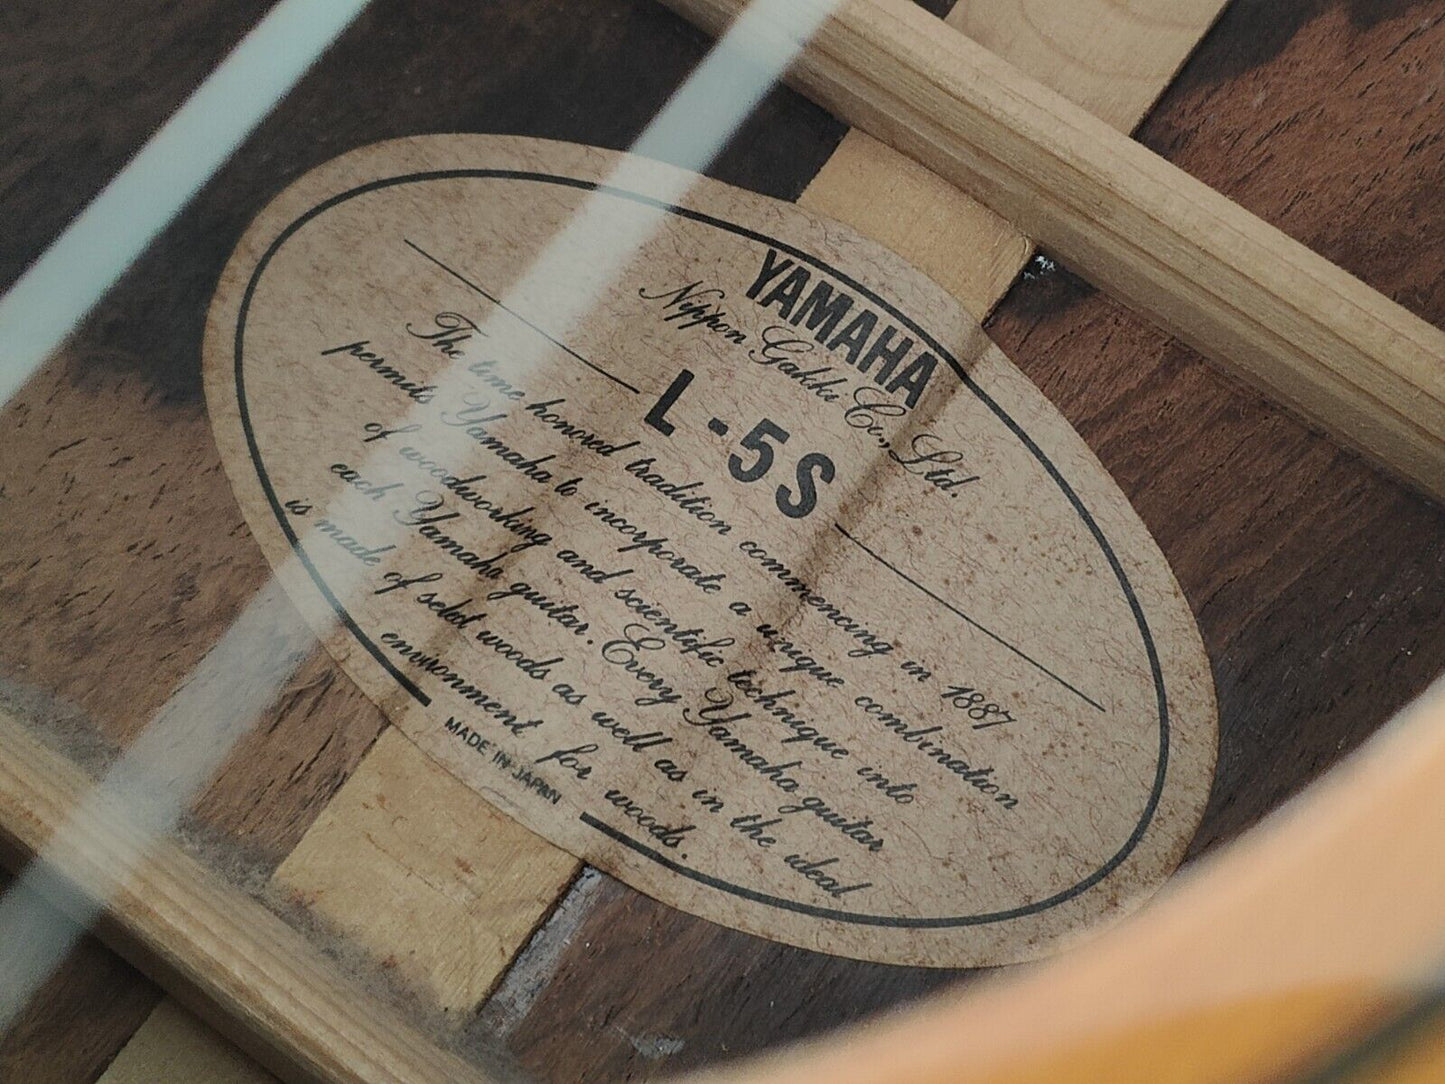 YAMAHA
Nippon Gakki Co., Ltd.
L-5S
The time honored tradition commencing in 1887
permits Yamaha to incorporate a unique combination
of woodworking and scientific technique into
each Yamaha guitar. Every Yamaha guitar
is made of select woods as well as in the ideal
environment for woods.
MADE IN JAPAN